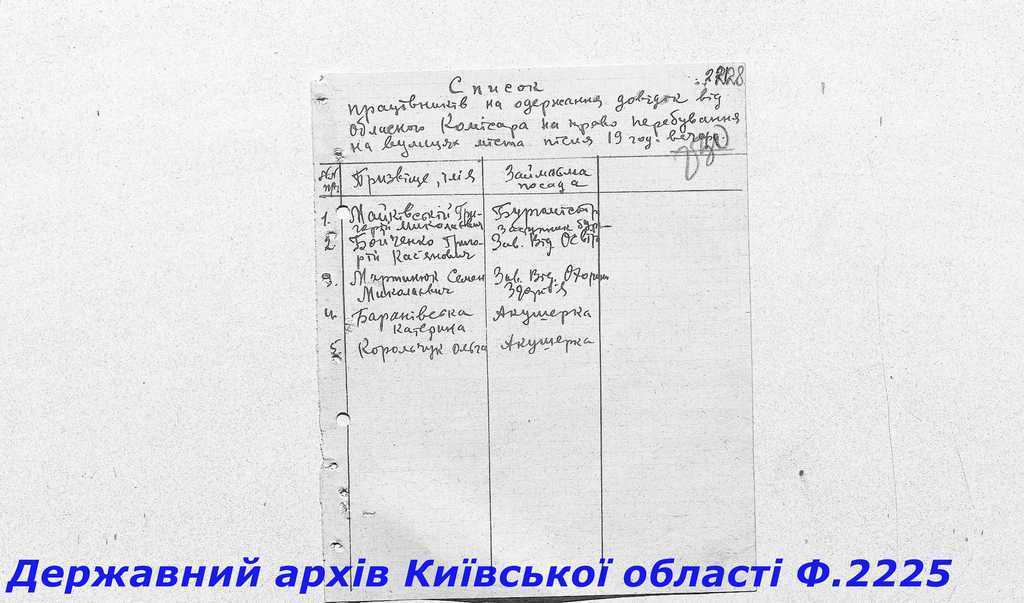 Список
працівників на одержання довідок від
обласного Комісара на право перебування
на вулицях міста після 19 год. вечора.
№№ п/п Прізвище, імя Займаєма посада
1. Майківській Григорій Миколаєвич Бургомістр
2. Бойченко Григорій Касянович Заступник бур– Зав. Від Освіт
3. Мартинюк Семен Миколаєвич Зав. Від. Охорони Здоровя
4. Баранівська Катерина Акушерка
5. Корольчук Ольга Акушерка
Державний архів Київської області Ф.2225